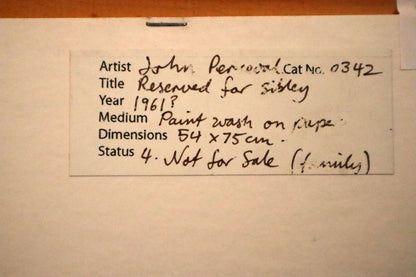 Artist John Perceval Cat No. 0342
Title Reserved for sibley
Year 1961?
Medium Paint wash on pape
Dimensions 54 x 75cm.
Status 4. Not for Sale (family)